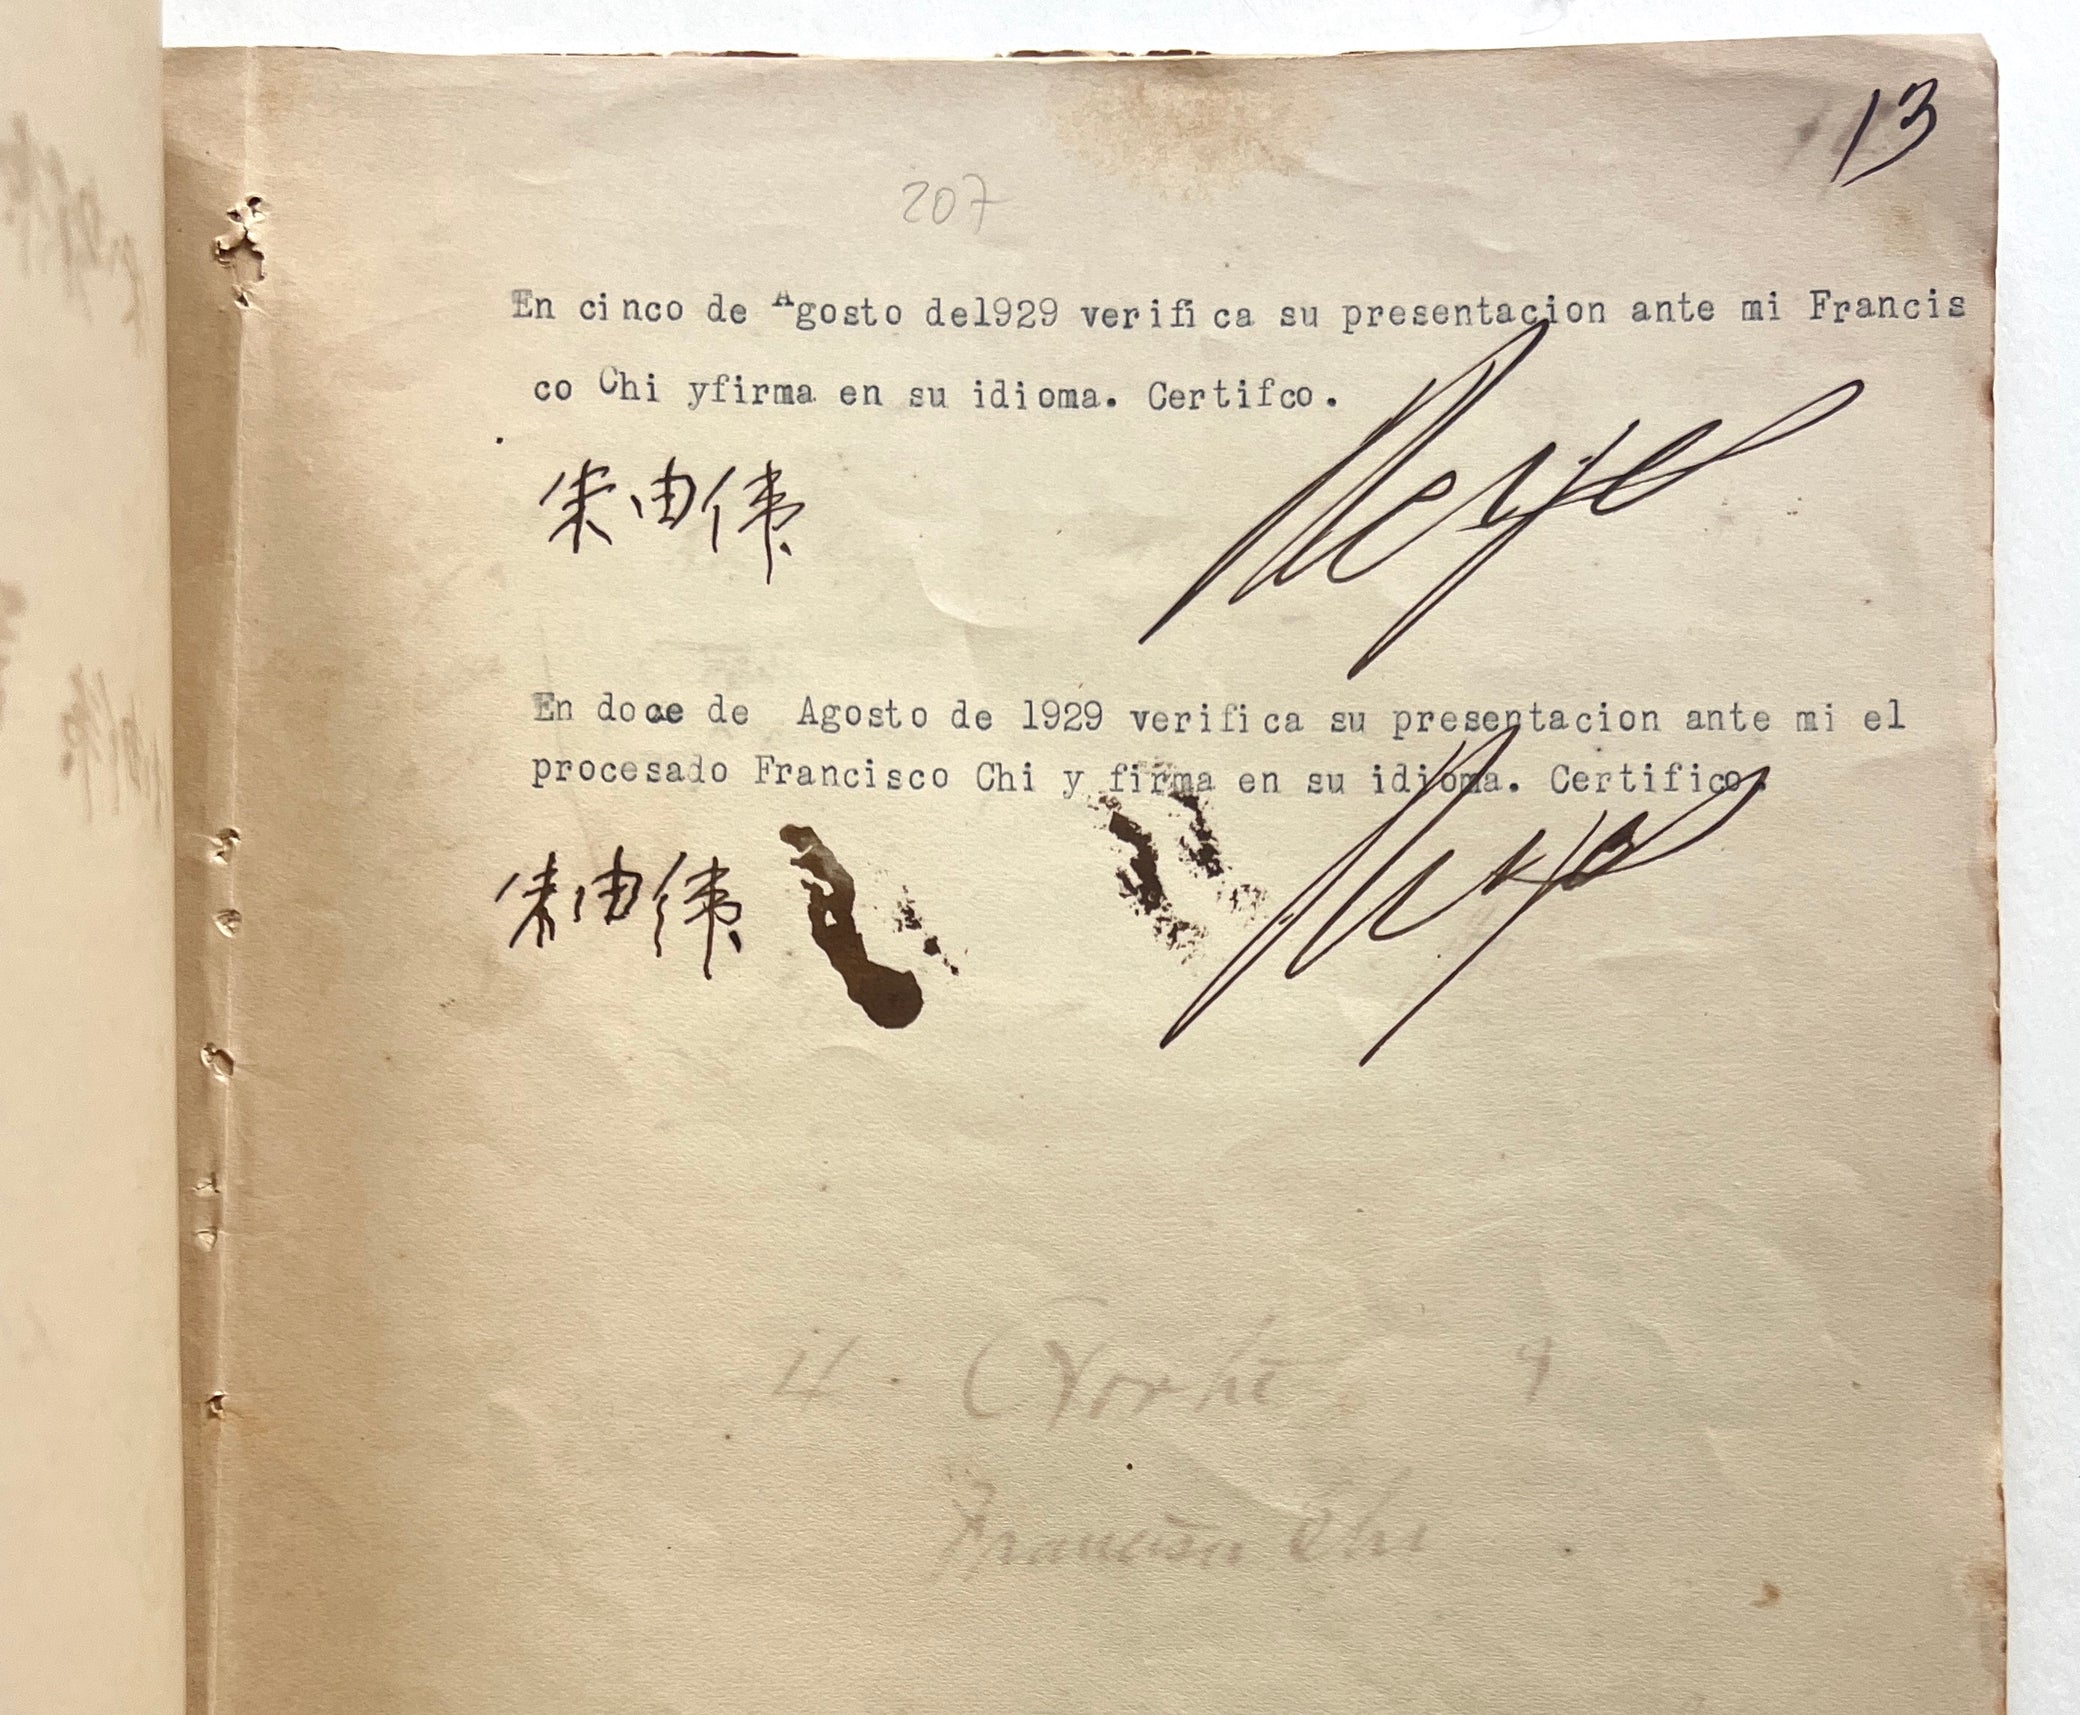 13
207
En cinco de Agosto del929 verifica su presentacion ante mi Francis
co Chi yfirma en su idioma. Certifco.
朱由伟
En doce de Agosto de 1929 verifica su presentacion ante mi el
procesado Francisco Chi y firma en su idioma. Certifico.
朱由伟
Francisco Chi